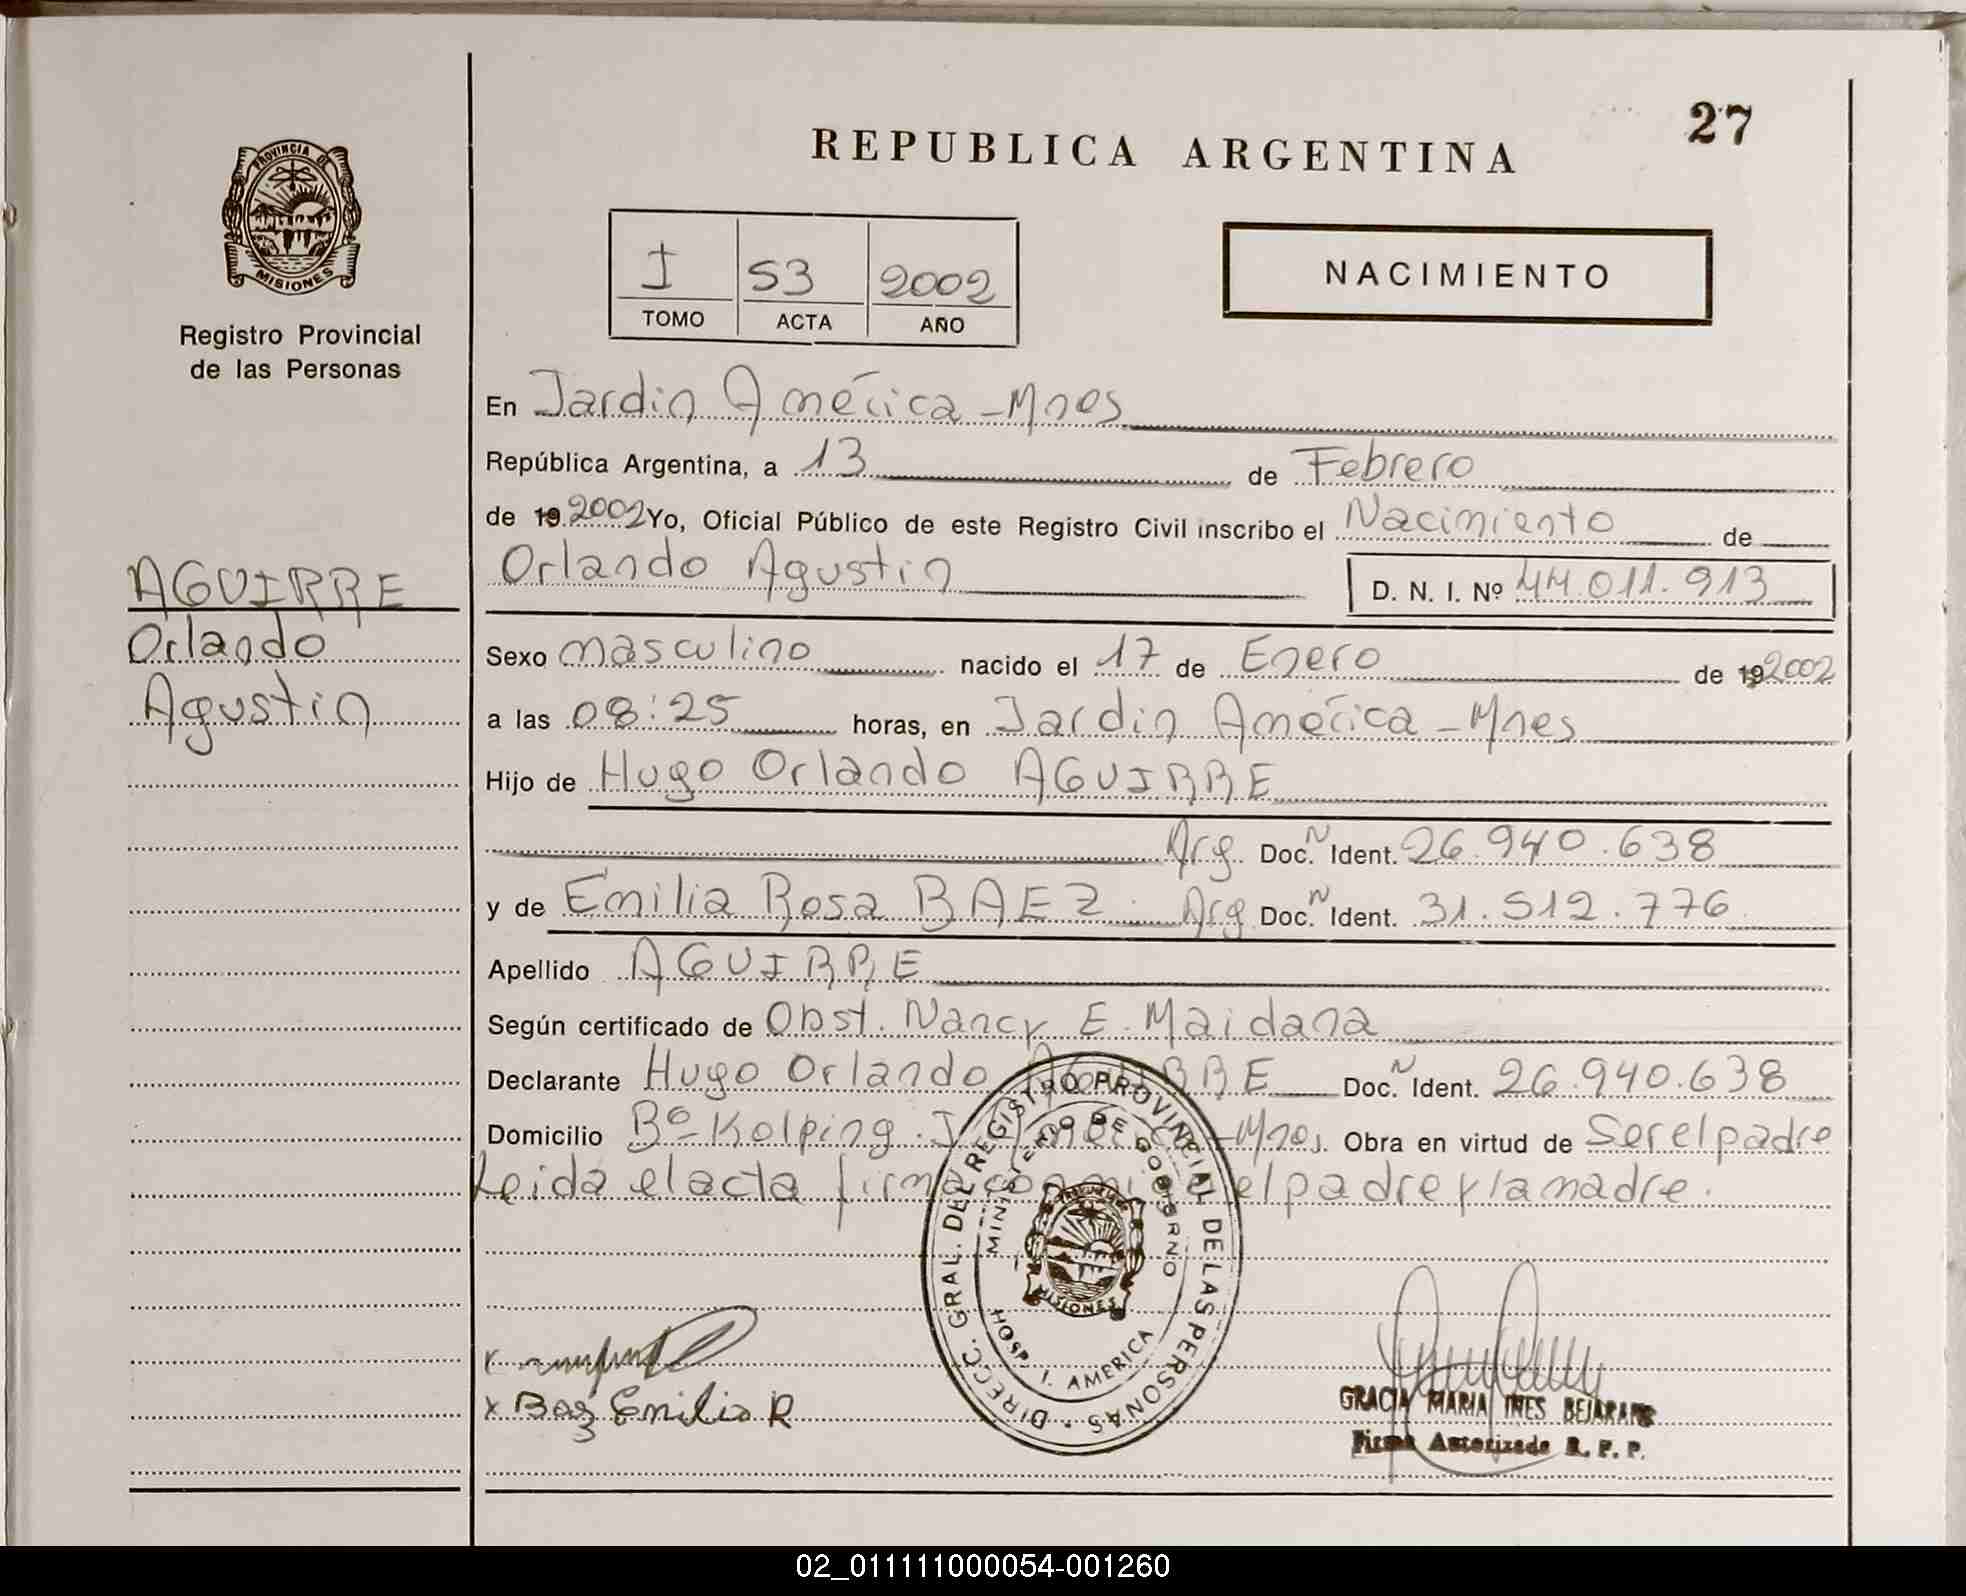 27
REPUBLICA ARGENTINA
PROVINCIA DE
MISIONES
Registro Provincial
de las Personas
I 53 2002
TOMO ACTA AÑO
NACIMIENTO
En Jardin América - Mnes
República Argentina, a 13 de Febrero
de 19 2002 Yo, Oficial Público de este Registro Civil inscribo el Nacimiento de
Orlando Agustin D. N. I. Nº 44.011.913
AGUIRRE
Orlando
Agustin
Sexo masculino nacido el 17 de Enero de 19 2002
a las 08:25 horas, en Jardin América - Mnes
Hijo de Hugo Orlando AGUIRRE
Arg. Doc. N Ident. 26.940.638
y de Emilia Rosa BAEZ. Arg Doc. N Ident. 31.512.776
Apellido AGUIRRE
Según certificado de Obst. Nancy E. Maidana
Declarante Hugo Orlando AGUIRRE Doc. N Ident. 26.940.638
Domicilio Bº Kolping. J. América - Mnes. Obra en virtud de Ser el padre
Leida el acta firma conmigo el padre y la madre.
DIRECC. GRAL. DEL REGISTRO PROVINCIAL DE LAS PERSONAS
MINISTERIO DE GOBIERNO
MISIONES
HOSP. J. AMERICA
x
x Baez Emilia R
GRACIA MARIA INES BEJARANO
Firma Autorizada R. P. P.
02_011111000054-001260